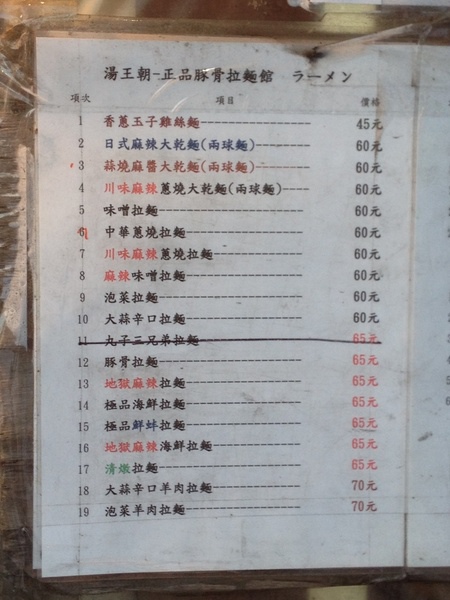 湯王朝-正品豚骨拉麵館 ラーメン
項次 項目 價格
1 香蔥玉子雞絲麵 45元
2 日式麻辣大乾麵(兩球麵) 60元
3 蒜燒麻醬大乾麵(兩球麵) 60元
4 川味麻辣蔥燒大乾麵(兩球麵) 60元
5 味噌拉麵 60元
6 中華蔥燒拉麵 60元
7 川味麻辣蔥燒拉麵 60元
8 麻辣味噌拉麵 60元
9 泡菜拉麵 60元
10 大蒜辛口拉麵 60元
11 丸子三兄弟拉麵 65元
12 豚骨拉麵 65元
13 地獄麻辣拉麵 65元
14 極品海鮮拉麵 65元
15 極品鮮蚌拉麵 65元
16 地獄麻辣海鮮拉麵 65元
17 清燉拉麵 65元
18 大蒜辛口羊肉拉麵 70元
19 泡菜羊肉拉麵 70元